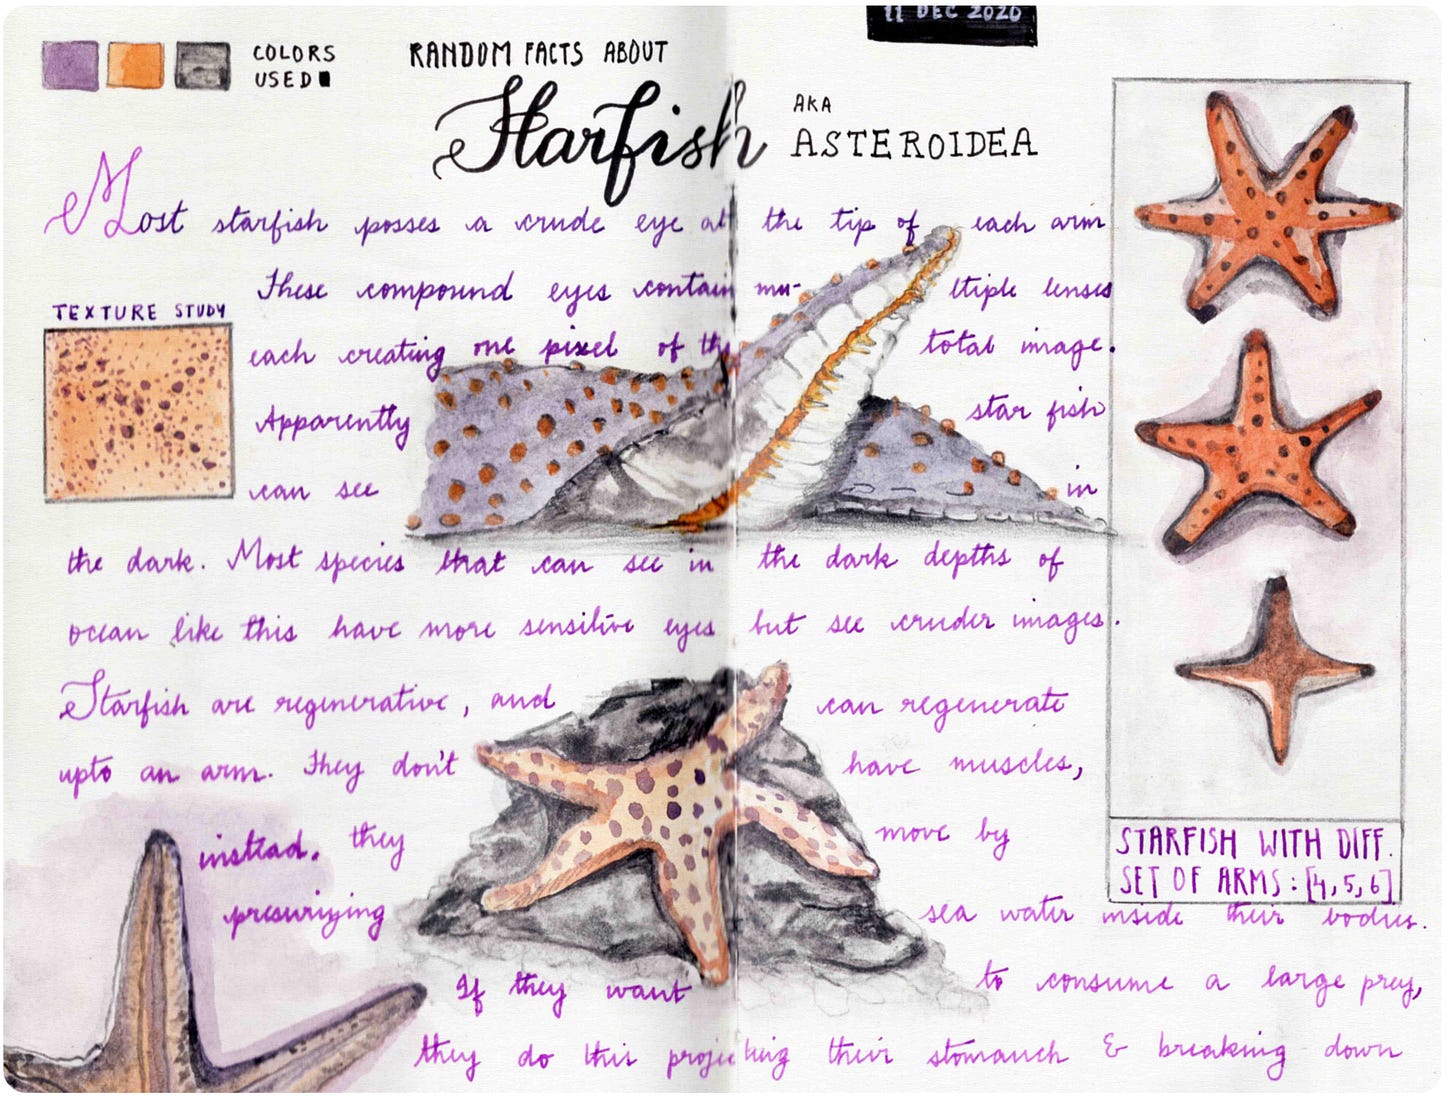 11 DEC 2020
COLORS
USED
RANDOM FACTS ABOUT
Starfish
AKA
ASTEROIDEA
Most starfish posses a crude eye at the tip of each arm
These compound eyes contain mu- ltiple lenses
TEXTURE STUDY
each creating one pixel of the total image.
Apparently star fish
can see in
the dark. Most species that can see in the dark depths of
ocean like this have more sensitive eyes but see cruder images.
Starfish are regenerative, and can regenerate
upto an arm. They don't have muscles,
instead, they move by
presurizing sea water inside their bodies.
If they want to consume a large prey,
they do this projecting their stomauch & breaking down
STARFISH WITH DIFF.
SET OF ARMS : [4,5,6]